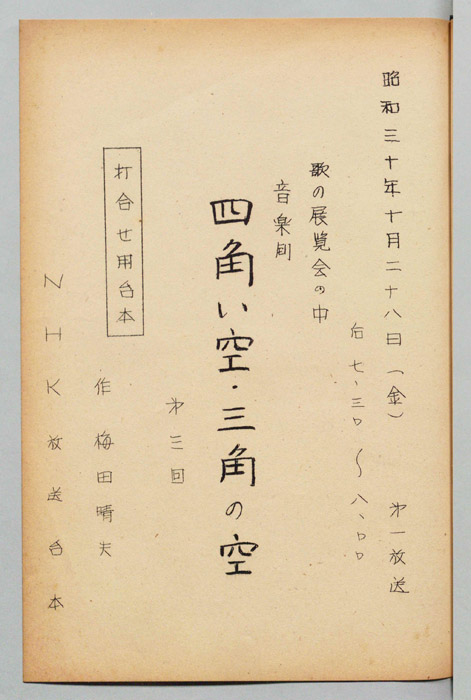 昭和三十年十月二十八日（金） 第一放送
后七、三〇〜八、〇〇
歌の展覧会の中
音楽劇
四角い空・三角の空
第三回
作 梅田晴夫
打合せ用台本
NHK放送台本